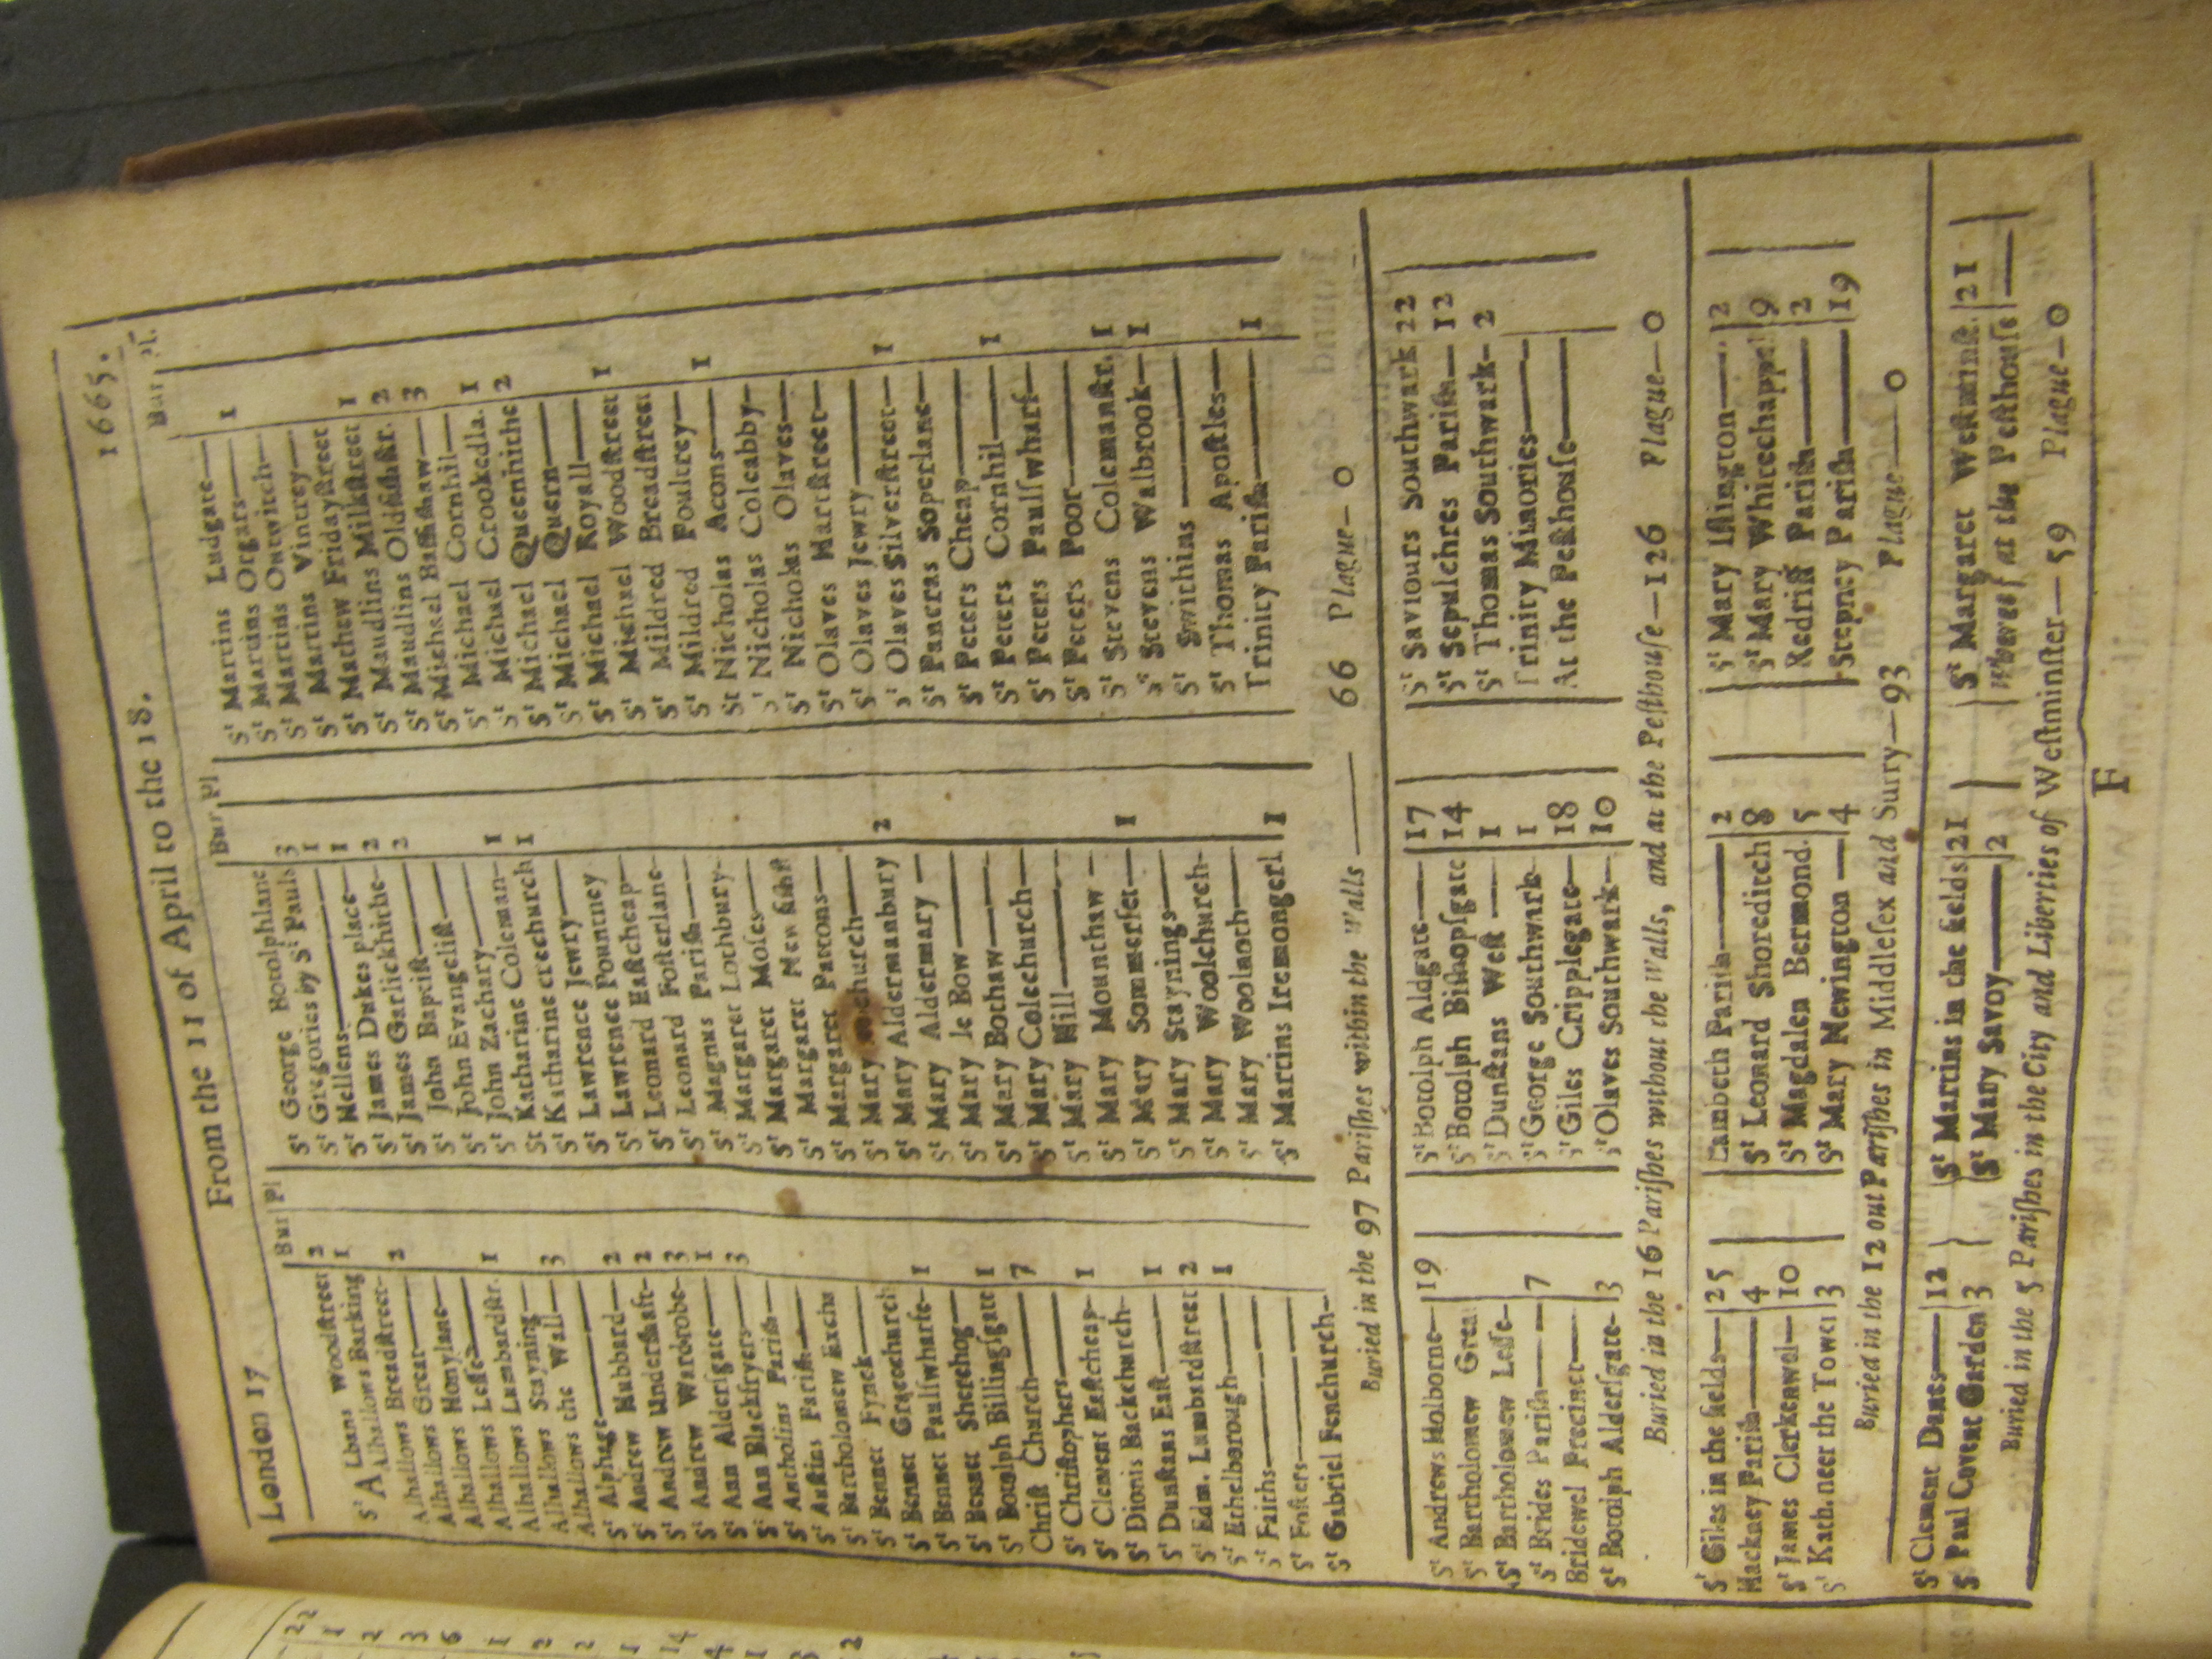 London 17
From the 11 of April to the 18.
1665.
Bur Pl
Sᵗ ALbans Woodſtreet 2
Alhallows Barking 1
Alhallows Breadſtreet
Alhallows Great 2
Alhallows Honylane
Alhallows Leſſe
Alhallows Lumbardſtr. 1
Alhallows Stayning
Alhallows the Wall 3
Sᵗ Alphage
Sᵗ Andrew Hubbard 2
Sᵗ Andrew Underſhaft 2
Sᵗ Andrew Wardrobe 3
Sᵗ Ann Alderſgate 1
Sᵗ Ann Blackfryers 3
Sᵗ Antholins Pariſh
Sᵗ Auſtins Pariſh
Sᵗ Bartholomew Exch
Sᵗ Bennet Fynck
Sᵗ Bennet Gracechurch
Sᵗ Bennet Paulſwharfe 1
Sᵗ Bennet Sherehog
Sᵗ Botolph Billingſgate 1
Chriſt Church 7
Sᵗ Chriſtophers
Sᵗ Clement Eaſtcheap 1
Sᵗ Dionis Backchurch
Sᵗ Dunſtans Eaſt 1
Sᵗ Edm. Lumbardſtreet 2
Sᵗ Ethelborough 1
Sᵗ Faiths
Sᵗ Foſters
Sᵗ Gabriel Fenchurch
Bur. Pl
Sᵗ George Botolphlane 3
Sᵗ Gregories by Sᵗ Pauls 1
Sᵗ Hellens 1
Sᵗ James Dukes place 2
Sᵗ James Garlickhithe 2
Sᵗ John Baptiſt
Sᵗ John Evangeliſt
Sᵗ John Zachary
Sᵗ Katharine Coleman 1
Sᵗ Katharine creechurch 1
Sᵗ Lawrence Jewry
Sᵗ Lawrence Pountney
Sᵗ Leonard Eaſtcheap
Sᵗ Leonard Foſterlane
Sᵗ Magnus Pariſh
Sᵗ Margaret Lothbury
Sᵗ Margaret Moſes
Sᵗ Margaret New fiſhſt
Sᵗ Margaret Pattons
Sᵗ Mary church
Sᵗ Mary Aldermanbury 2
Sᵗ Mary Aldermary
Sᵗ Mary le Bow
Sᵗ Mary Bothaw
Sᵗ Mary Colechurch
Sᵗ Mary Hill
Sᵗ Mary Mounthaw
Sᵗ Mary Sommerſet 1
Sᵗ Mary Staynings
Sᵗ Mary Woolchurch
Sᵗ Mary Woolnoth
Sᵗ Martins Iremongerl 1
Bur Pl.
Sᵗ Martins Ludgate
Sᵗ Martins Orgars 1
Sᵗ Martins Outwitch
Sᵗ Martins Vintrey
Sᵗ Mathew Fridayſtreet
Sᵗ Maudlins Milkſtreet 1
Sᵗ Maudlins Oldfiſhſtr. 2
Sᵗ Michael Baſſiſhaw 3
Sᵗ Michael Cornhil
Sᵗ Michael Crookedla. 1
Sᵗ Michael Queenhithe 2
Sᵗ Michael Quern
Sᵗ Michael Royall
Sᵗ Michael Woodſtreet 1
Sᵗ Mildred Breadſtreet
Sᵗ Mildred Poultrey
Sᵗ Nicholas Acons 1
Sᵗ Nicholas Coleabby
Sᵗ Nicholas Olaves
Sᵗ Olaves Hartſtreet
Sᵗ Olaves Jewry
Sᵗ Olaves Silverſtreet 1
Sᵗ Pancras Soperlane
Sᵗ Peters Cheap
Sᵗ Peters Cornhil 1
Sᵗ Peters Paulſwharf
Sᵗ Peters Poor
Sᵗ Stevens Colemanſtr. 1
Sᵗ Stevens Walbrook 1
Sᵗ Swithins
Sᵗ Thomas Apoſtles
Trinity Pariſh 1
Buried in the 97 Pariſhes within the Walls — 66 Plague — 0
Sᵗ Andrews Holborne 19
Sᵗ Bartholomew Great
Sᵗ Bartholomew Leſſe
Sᵗ Brides Pariſh 7
Bridewel Precinct
Sᵗ Botolph Alderſgate 3
Sᵗ Botolph Aldgate 17
Sᵗ Botolph Biſhopſgate 14
Sᵗ Dunſtans Weſt 1
Sᵗ George Southwark 1
Sᵗ Giles Cripplegate 18
Sᵗ Olaves Southwark 10
Sᵗ Saviours Southwark 22
Sᵗ Sepulchres Pariſh 12
Sᵗ Thomas Southwark 2
Trinity Minories
At the Peſthouſe
Buried in the 16 Pariſhes without the Walls, and at the Peſthouſe — 126 Plague — 0
Sᵗ Giles in the fields 25
Hackney Pariſh 4
Sᵗ James Clerkenwel 10
Sᵗ Kath. neer the Tower 3
Lambeth Pariſh 2
Sᵗ Leonard Shoreditch 8
Sᵗ Magdalen Bermond. 5
Sᵗ Mary Newington 4
Sᵗ Mary Iſlington 2
Sᵗ Mary Whitechappel 9
Redriff Pariſh 2
Stepney Pariſh 19
Buried in the 12 out Pariſhes in Middleſex and Surry — 93 Plague — 0
Sᵗ Clement Danes 12
Sᵗ Paul Covent Garden 3
Sᵗ Martins in the fields 21
Sᵗ Mary Savoy 2
Sᵗ Margaret Weſtminſt. 21
Whereof at the Peſthouſe
Buried in the 5 Pariſhes in the City and Liberties of Weſtminſter — 59 Plague — 0
F